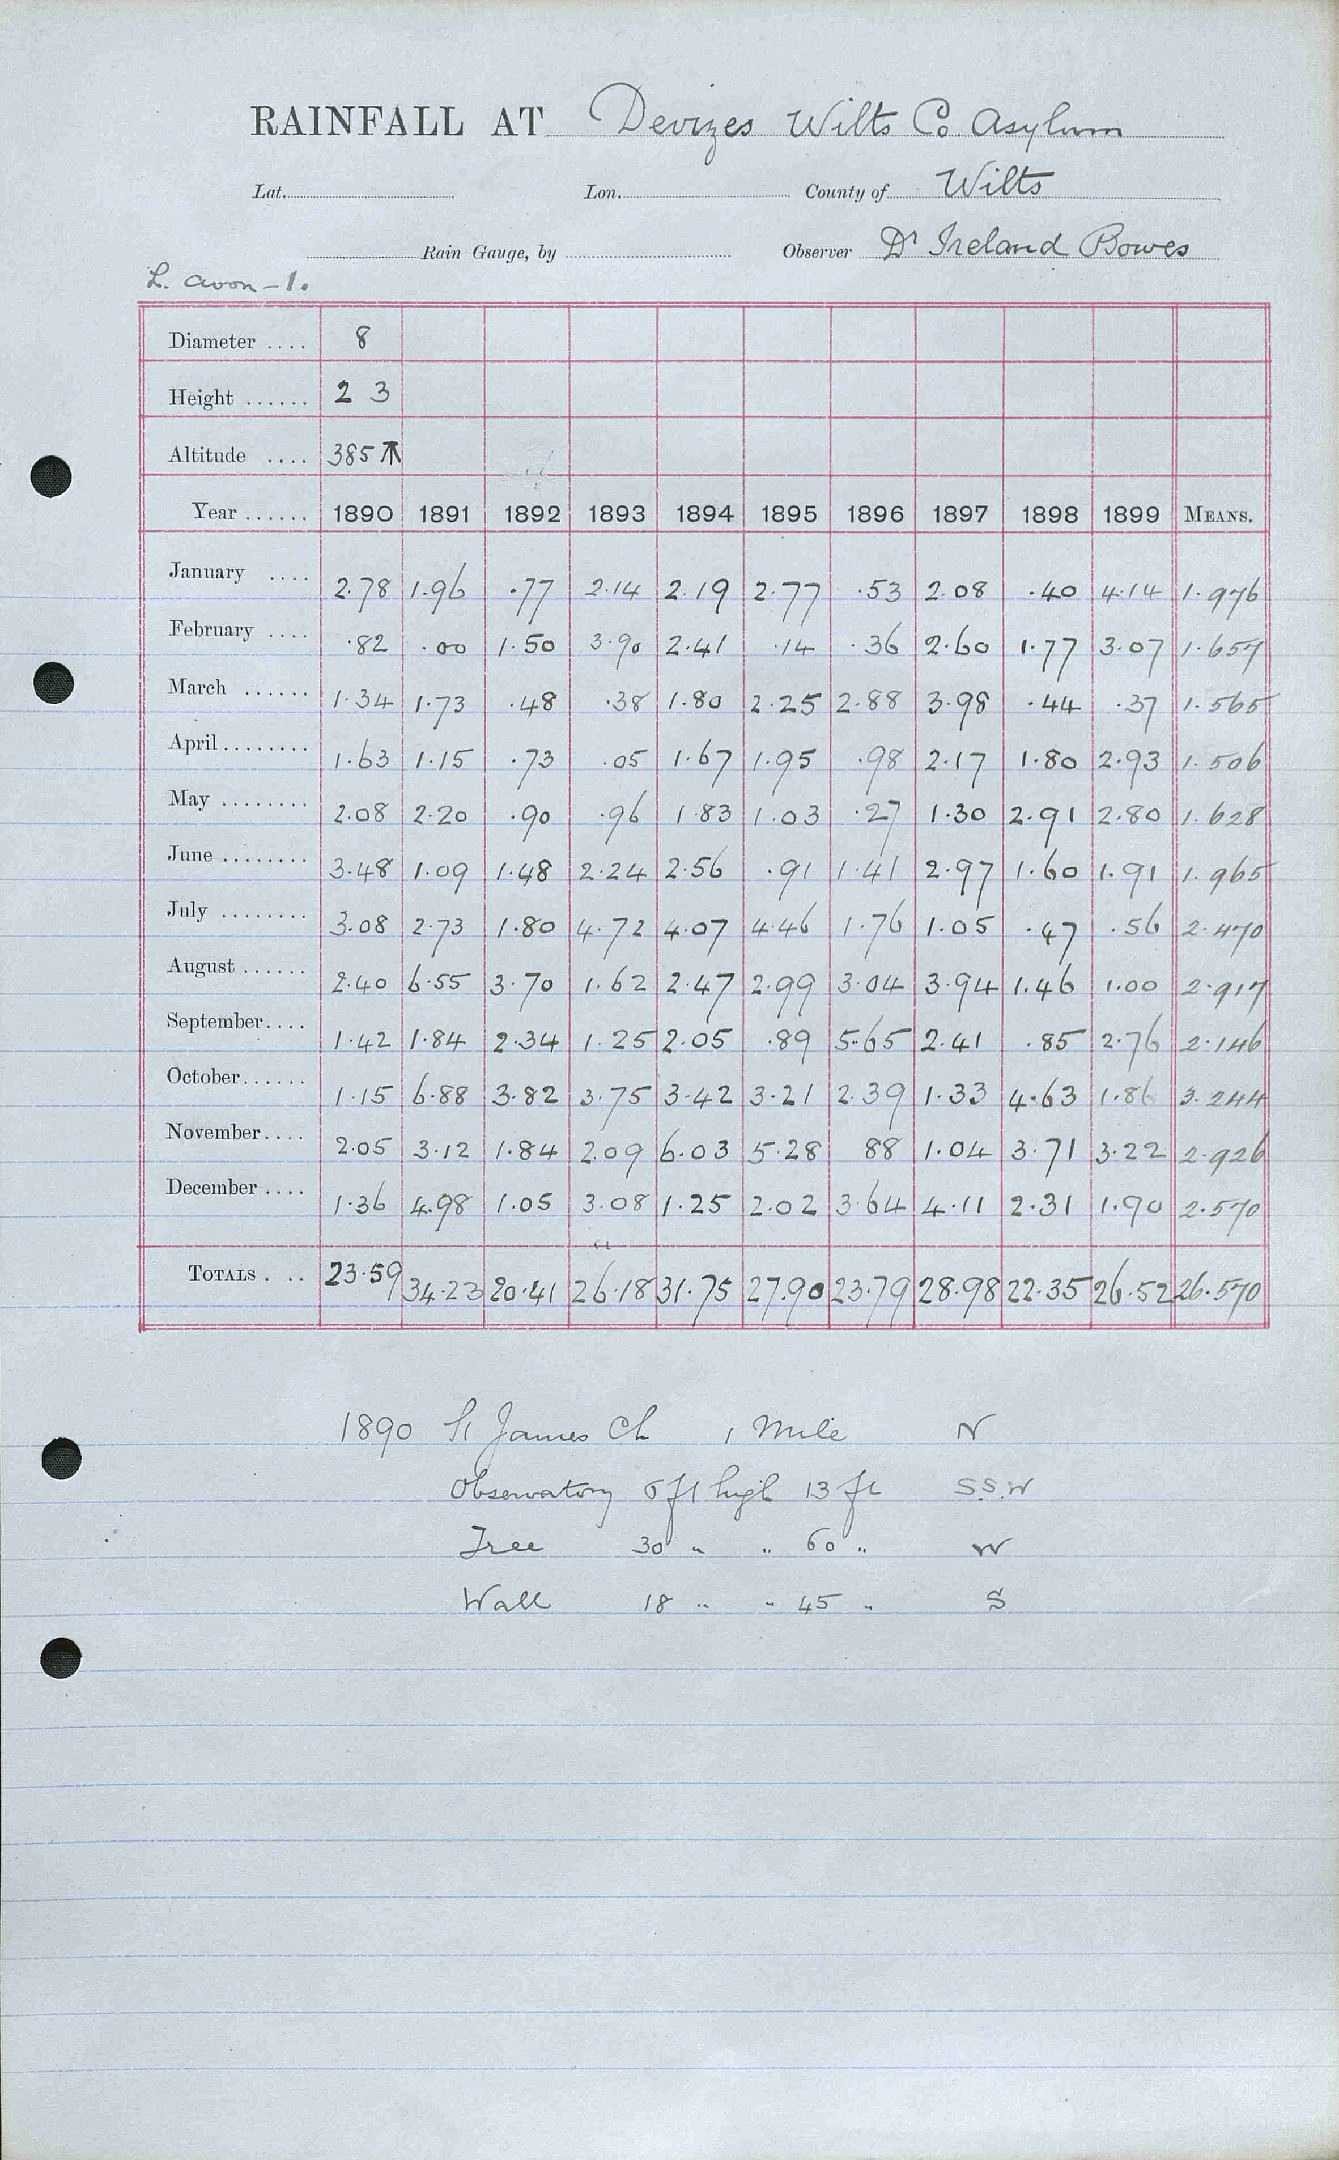 RAINFALL AT Devizes Wilts Co. Asylum
Lat. Lon. County of Wilts
Rain Gauge, by Observer Dr Ireland Bowes
L. Avon - 1.
Diameter .... 8
Height ...... 2 3
Altitude .... 385
Year ...... 1890 1891 1892 1893 1894 1895 1896 1897 1898 1899 MEANS.
January .... 2.78 1.96 .77 2.14 2.19 2.77 .53 2.08 .40 4.14 1.976
February .... .82 .00 1.50 3.90 2.41 .14 .36 2.60 1.77 3.07 1.657
March ...... 1.34 1.73 .48 .38 1.80 2.25 2.88 3.98 .44 .37 1.565
April........ 1.63 1.15 .73 .05 1.67 1.95 .98 2.17 1.80 2.93 1.506
May ........ 2.08 2.20 .90 .96 1.83 1.03 .27 1.30 2.91 2.80 1.628
June ........ 3.48 1.09 1.48 2.24 2.56 .91 1.41 2.97 1.60 1.91 1.965
July ........ 3.08 2.73 1.80 4.72 4.07 4.46 1.76 1.05 .47 .56 2.470
August ...... 2.40 6.55 3.70 1.62 2.47 2.99 3.04 3.94 1.46 1.00 2.917
September.... 1.42 1.84 2.34 1.25 2.05 .89 5.65 2.41 .85 2.76 2.146
October...... 1.15 6.88 3.82 3.75 3.42 3.21 2.39 1.33 4.63 1.86 3.244
November.... 2.05 3.12 1.84 2.09 6.03 5.28 88 1.04 3.71 3.22 2.926
December .... 1.36 4.98 1.05 3.08 1.25 2.02 3.64 4.11 2.31 1.90 2.570
TOTALS . .. 23.59 34.23 20.41 26.18 31.75 27.90 23.79 28.98 22.35 26.52 26.570
1890 St James Ch 1 Mile N
Observatory 6 ft high 13 ft S.S.W
Tree 30 " " 60 " W
Wall 18 " " 45 " S